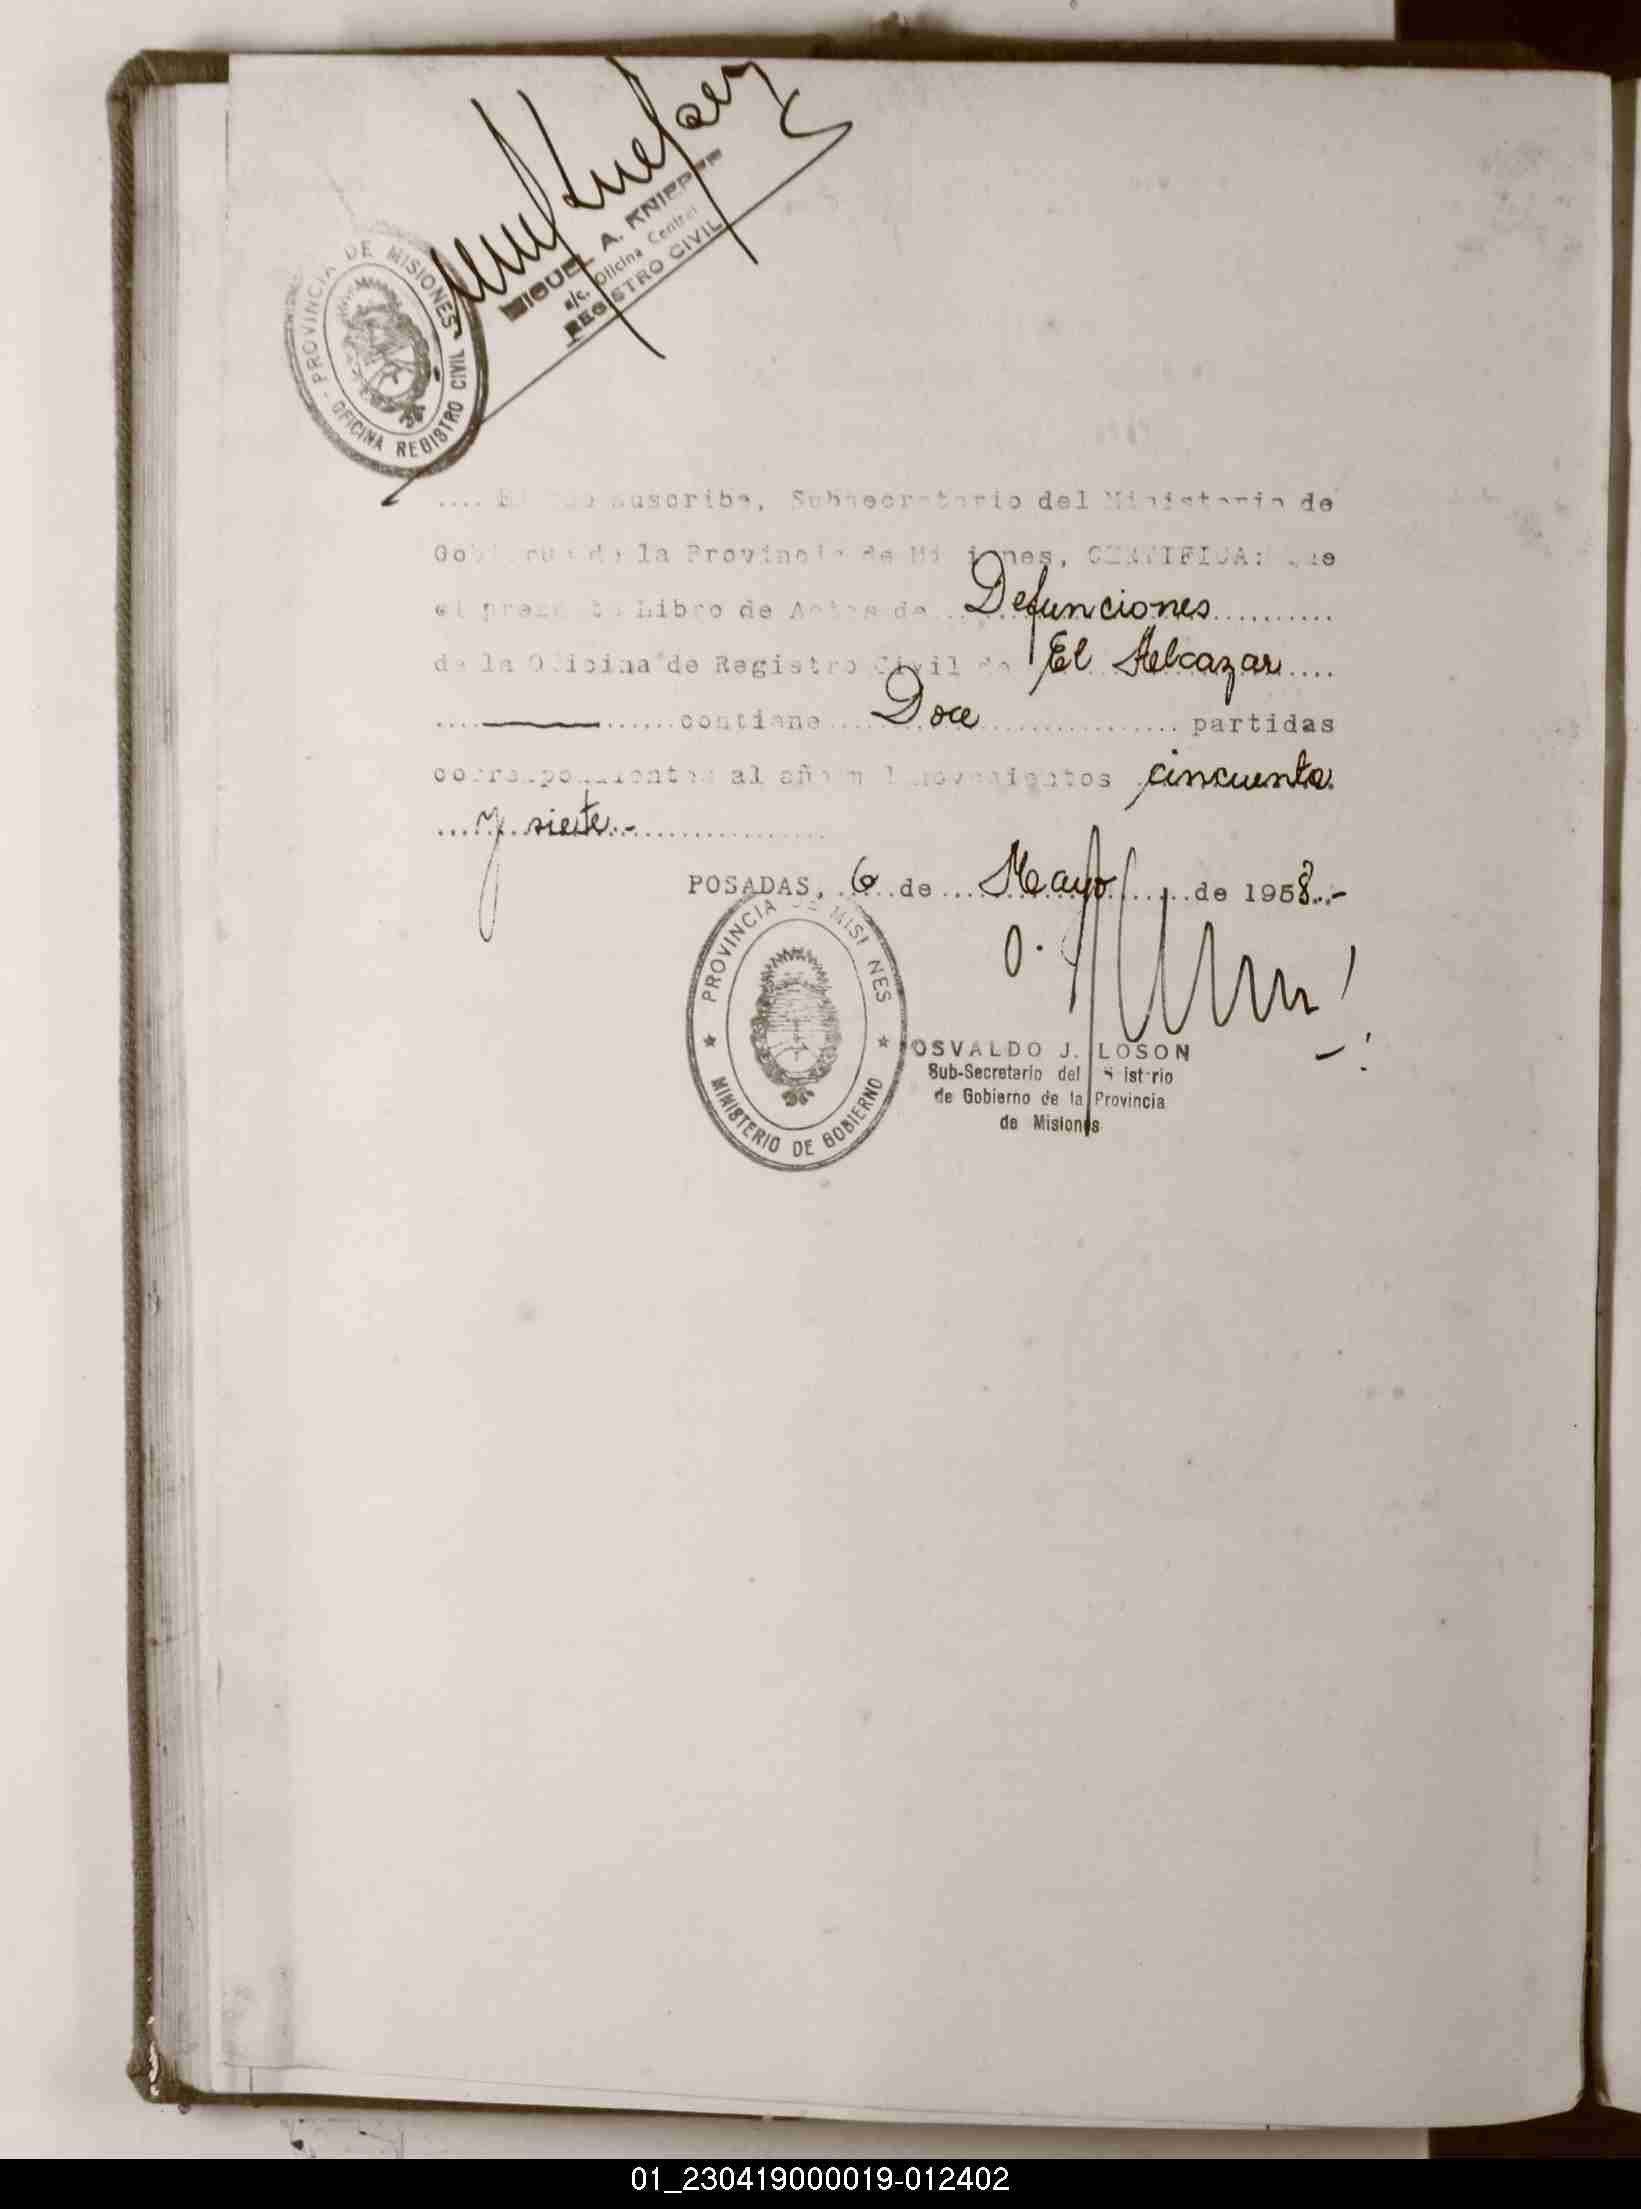 MIGUEL A.
a/c. Oficina Central
REGISTRO CIVIL
PROVINCIA DE MISIONES
OFICINA REGISTRO CIVIL
.... El que suscribe, Subsecretario del Ministerio de
Gobierno de la Provincia de Misiones, CERTIFICA: Que
el presente Libro de Actas de ... Defunciones ...........
de la Oficina de Registro Civil de El Alcazar ....
.... contiene .... Doce ................ partidas
correspondientes al año mil novecientos cincuenta
.... y siete.- ................
POSADAS, 6 de Mayo de 1958.-
PROVINCIA DE MISIONES
MINISTERIO DE GOBIERNO
OSVALDO J. LOSON
Sub-Secretario del Ministerio
de Gobierno de la Provincia
de Misiones
01_230419000019-012402